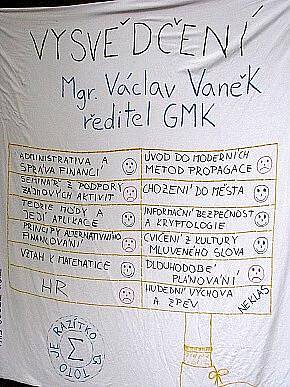 VYSVĚDČENÍ
Mgr. Václav Vaněk
ředitel GMK
ADMINISTRATIVA A
SPRÁVA FINANCÍ
SEMINÁŘ Z PODPORY
ZÁJMOVÝCH AKTIVIT
TEORIE MÓDY A
JEJÍ APLIKACE
PRINCIPY ALTERNATIVNÍHO
FINANCOVÁNÍ
VZTAH K MATEMATICE
HR
ÚVOD DO MODERNÍCH
METOD PROPAGACE
CHOZENÍ DO MĚSTA
INFORMAČNÍ BEZPEČNOST
A KRYPTOLOGIE
CVIČENÍ Z KULTURY
MLUVENÉHO SLOVA
DLOUHODOBÉ
PLÁNOVÁNÍ
HUDEBNÍ VÝCHOVA
A ZPĚV
NEKLAS
TOTO JE RAZÍTKO
Σ